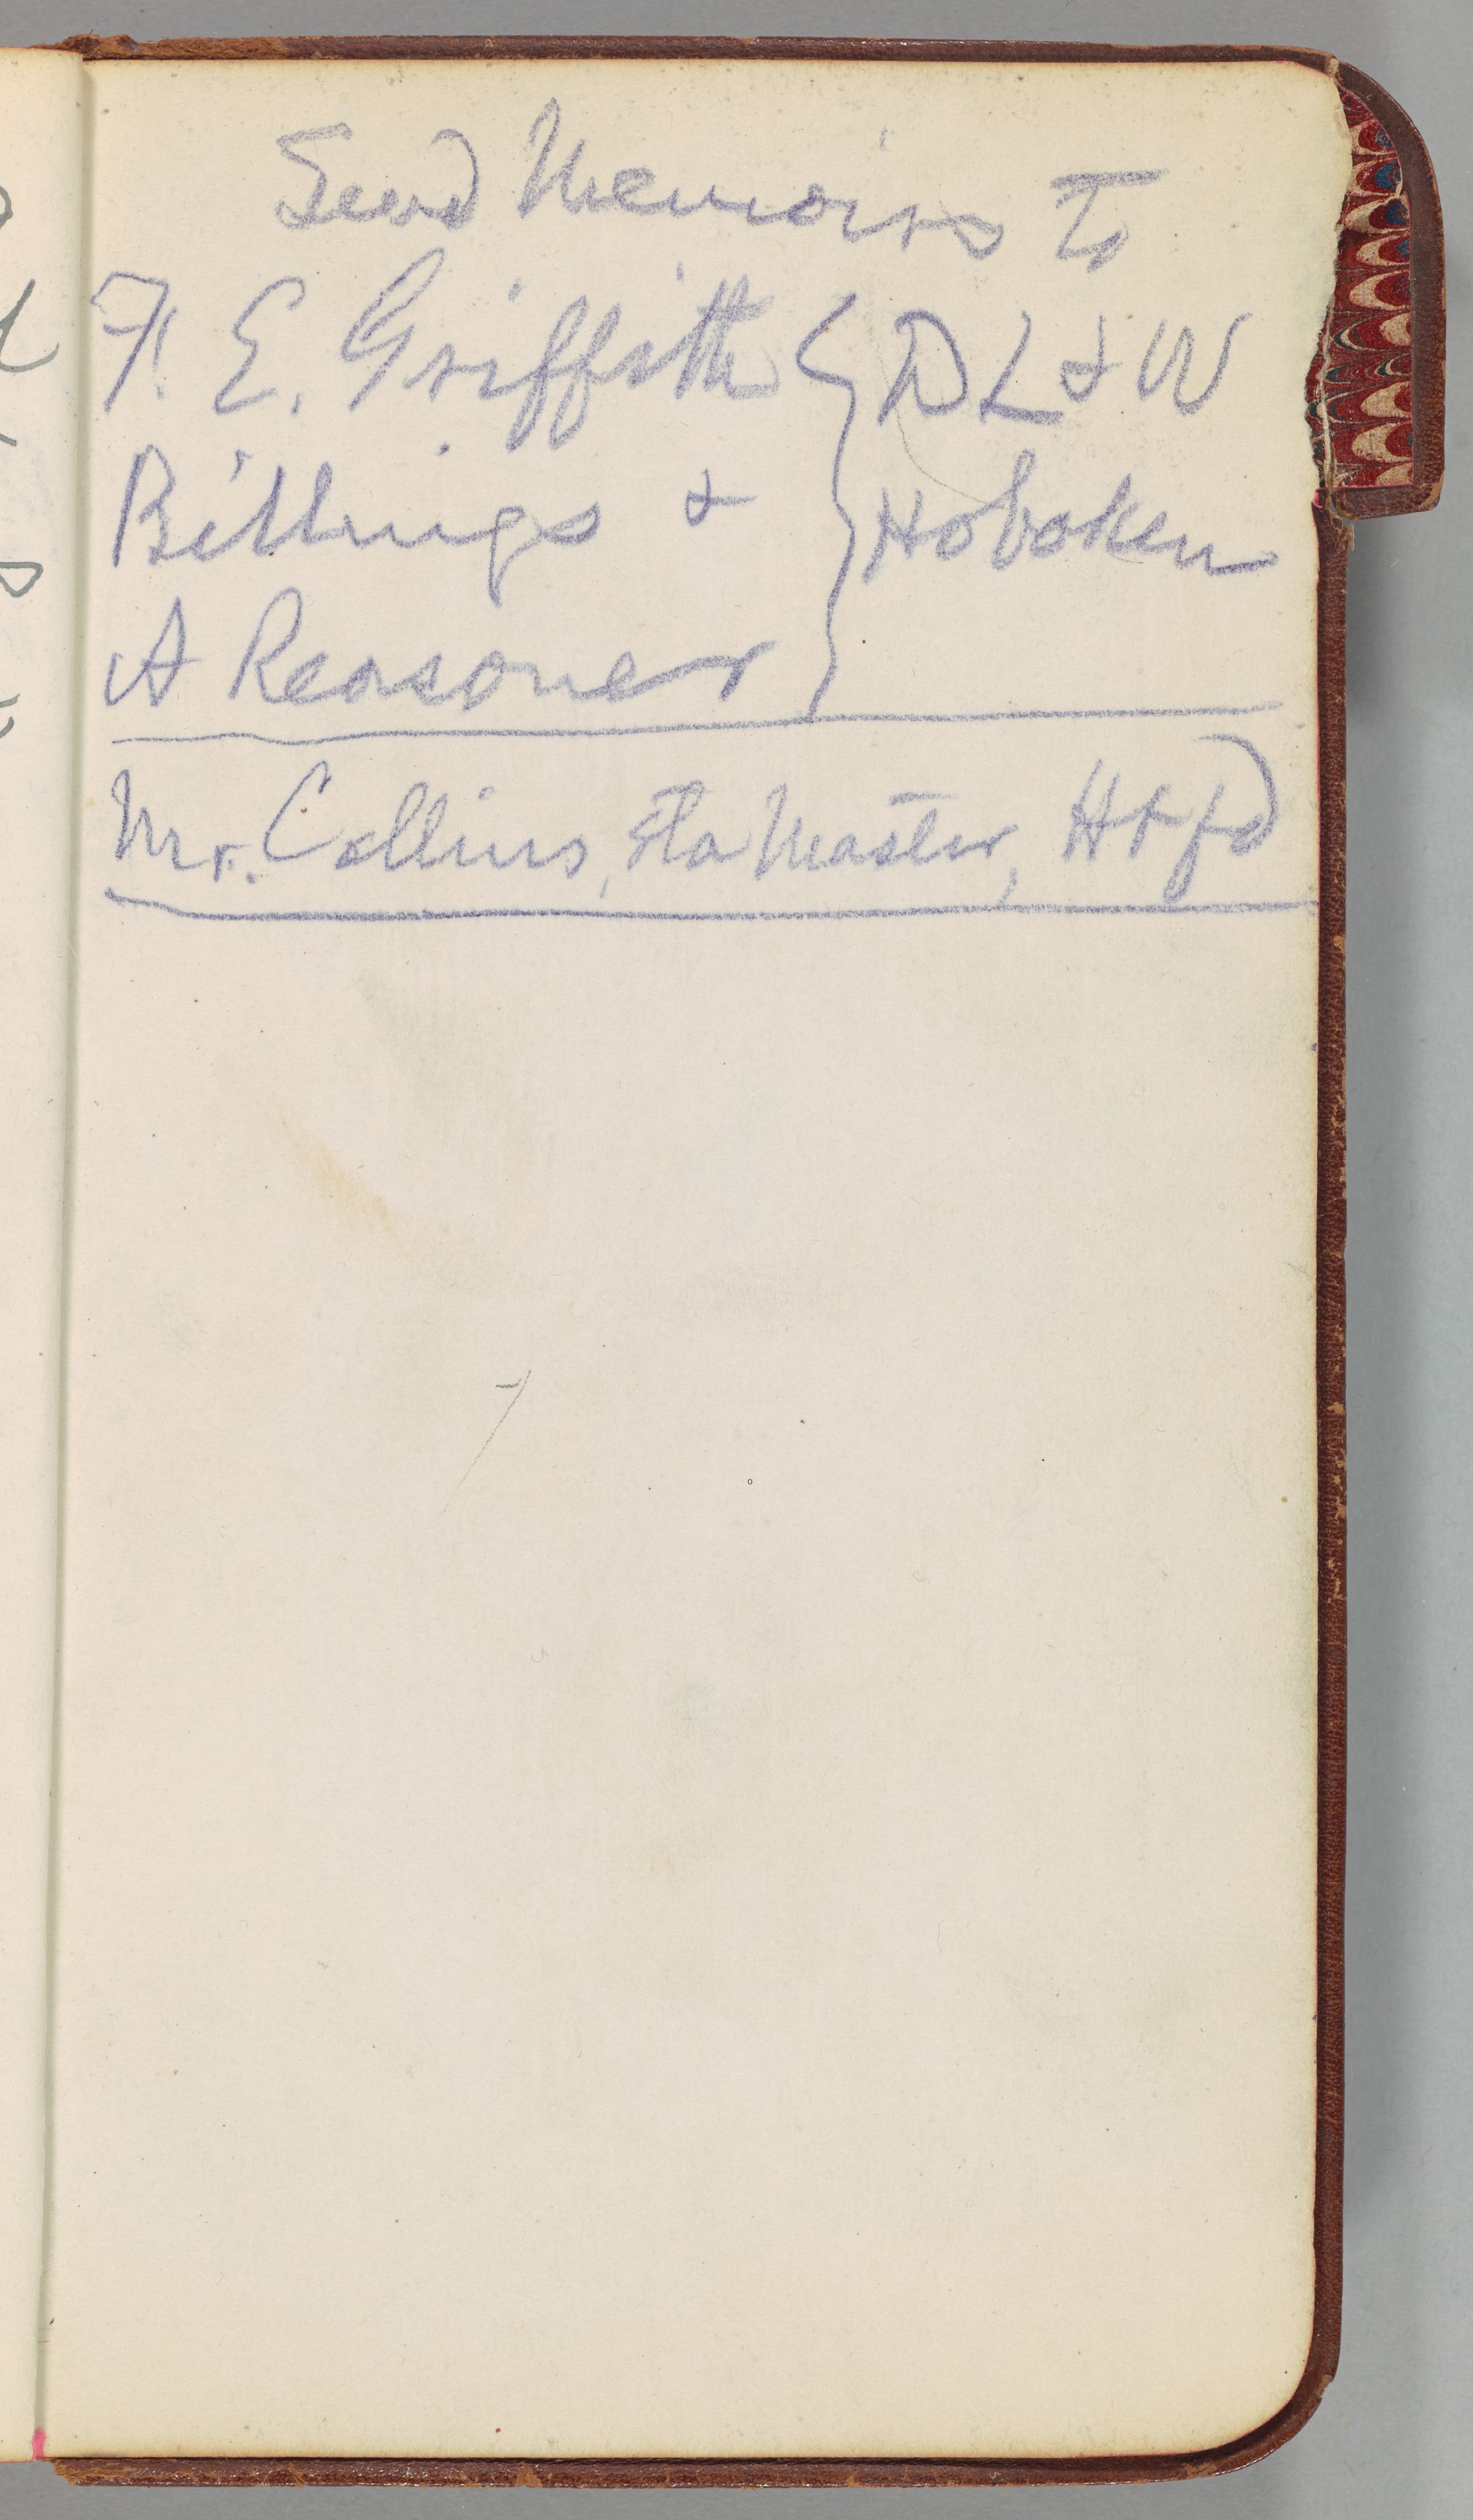 Send Memoirs to
F. E. Griffith } D L & W
Billings & } Hoboken
A Reasoner }
Mr. Collins, Sta Master, Htfd